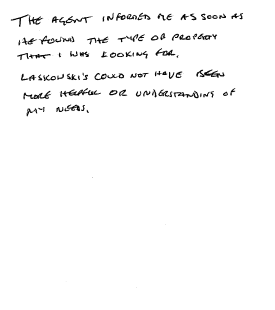 THE AGENT INFORMED ME AS SOON AS
HE FOUND THE TYPE OF PROPERTY
THAT I WAS LOOKING FOR.
LASKOWSKI'S COULD NOT HAVE BEEN
MORE HELPFUL OR UNDERSTANDING OF
MY NEEDS.